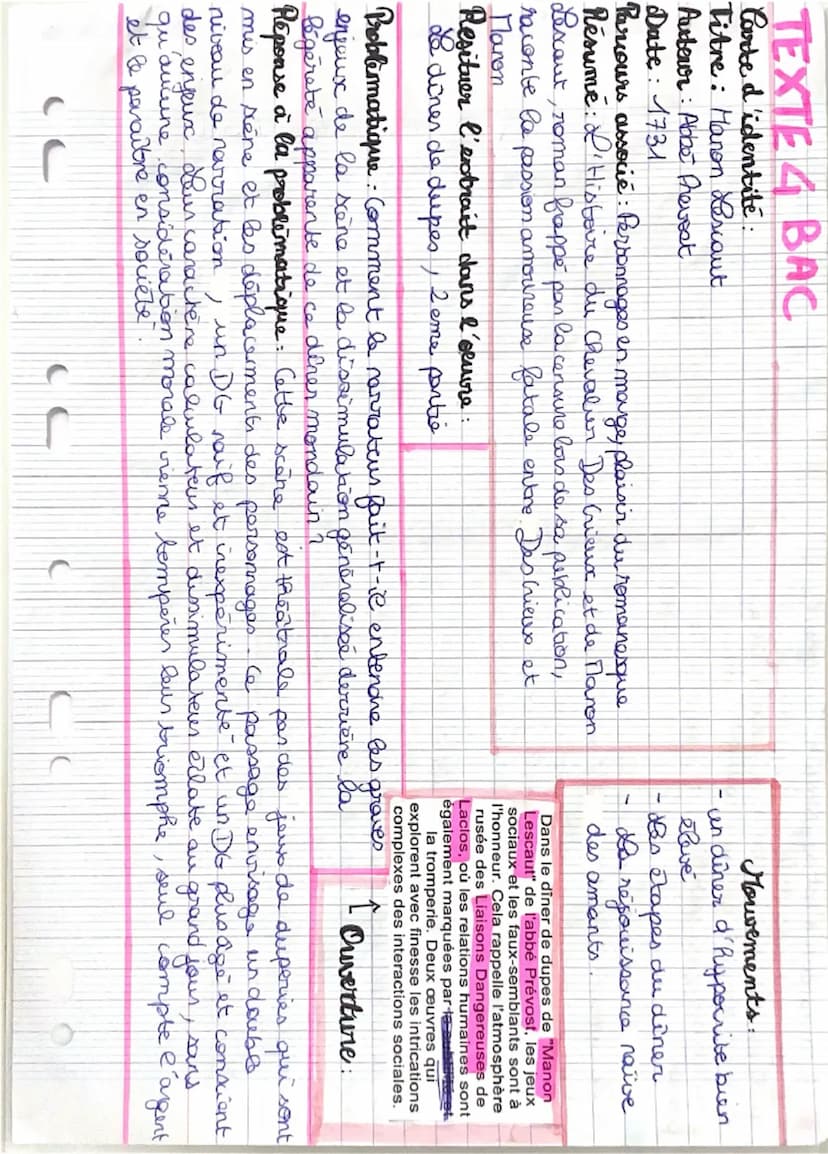 TEXTE 4 BAC
Carte d'identité :
Titre : Manon Lescaut
Auteur : Abbé Prevost
Date : 1731
Parcours associé : Personnages en marge, plaisir du romanesque
Résumé : L'Histoire du Chevalier Des Grieux et de Manon
Lescaut, roman frappé par la censure lors de sa publication,
raconte la passion amoureuse fatale entre Des Grieux et
Manon
Resituer l'extrait dans l'œuvre :
Le dîner de dupes, 2eme partie
Problématique : Comment le narrateur fait-t-il entendre les graves
enjeux de la scène et la dissimulation généralisée derrière la
légèreté apparente de ce dîner mondain ?
Réponse à la problématique : Cette scène est théâtrale par des jeux de duperies qui sont
mis en scène et les déplacements des personnages. Ce passage envisage un double
niveau de narration, un DG naïf et inexpérimenté et un DG plus agé et conscient
des enjeux. Leur caractère calculateur et dissimulateur éclate au grand jour, sans
qu'aucune considération morale vienne tempérer leur triomphe, seul compte l'argent
et le paraître en société.
Mouvements :
- un dîner d'hypocrite bien
élevé
- Les étapes du dîner
- La réjouissance naïve
des amants.
Dans le dîner de dupes de "Manon
Lescaut" de l'abbé Prévost, les jeux
sociaux et les faux-semblants sont à
l'honneur. Cela rappelle l'atmosphère
rusée des Liaisons Dangereuses de
Laclos, où les relations humaines sont
également marquées par
la tromperie. Deux œuvres qui
explorent avec finesse les intrications
complexes des interactions sociales.
↑ Ouverture :